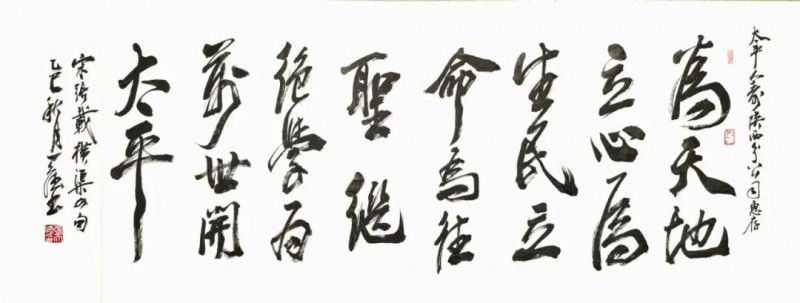 太平人寿陕西分公司惠存
為天地
立心為
生民立
命為往
聖繼
絕學为
萬世開
太平
宋張載橫渠四句
乙巳秋月一